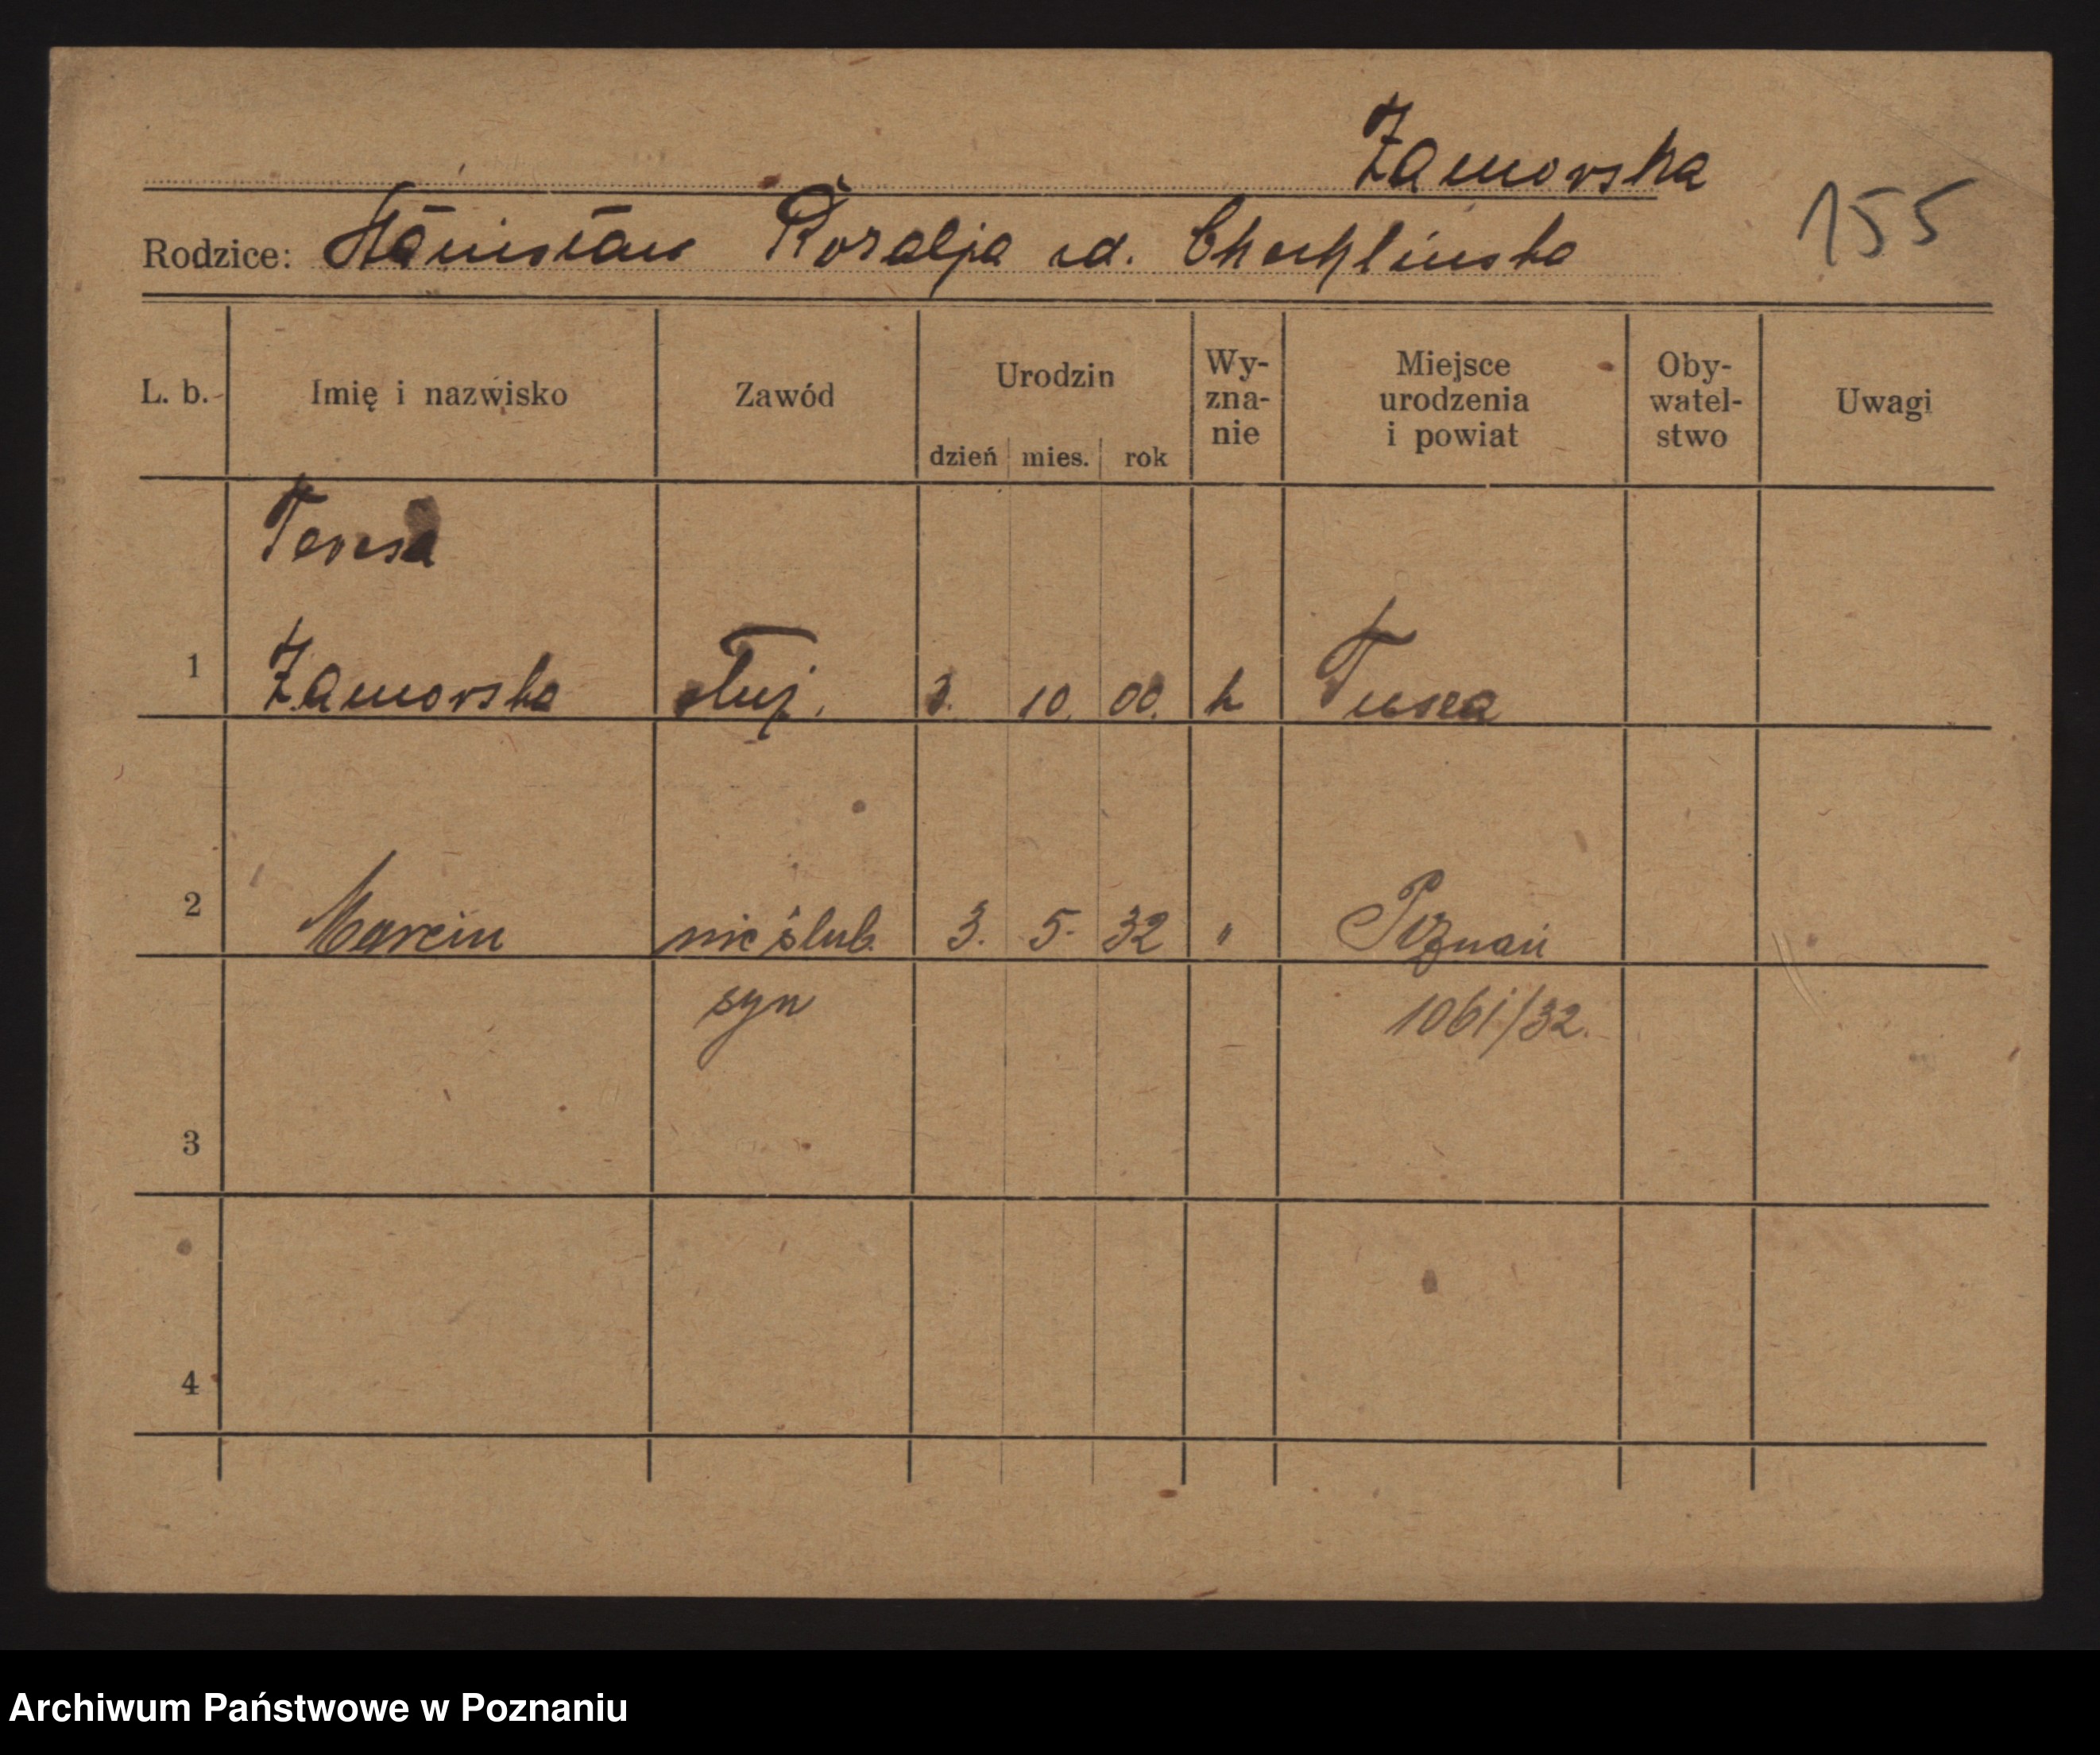 Żamorska
155
Rodzice: Stanisław Rozalja zd. Chechlińska
L. b. Imię i nazwisko Zawód Urodzin dzień mies. rok Wy-zna-nie Miejsce urodzenia i powiat Oby-watel-stwo Uwagi
Teresa
1 Żamorska służ. 3. 10. 00. k
2 Marcin nieślub. 3. 5. 32 " Poznań
syn 1061/32.
3
4
Archiwum Państwowe w Poznaniu